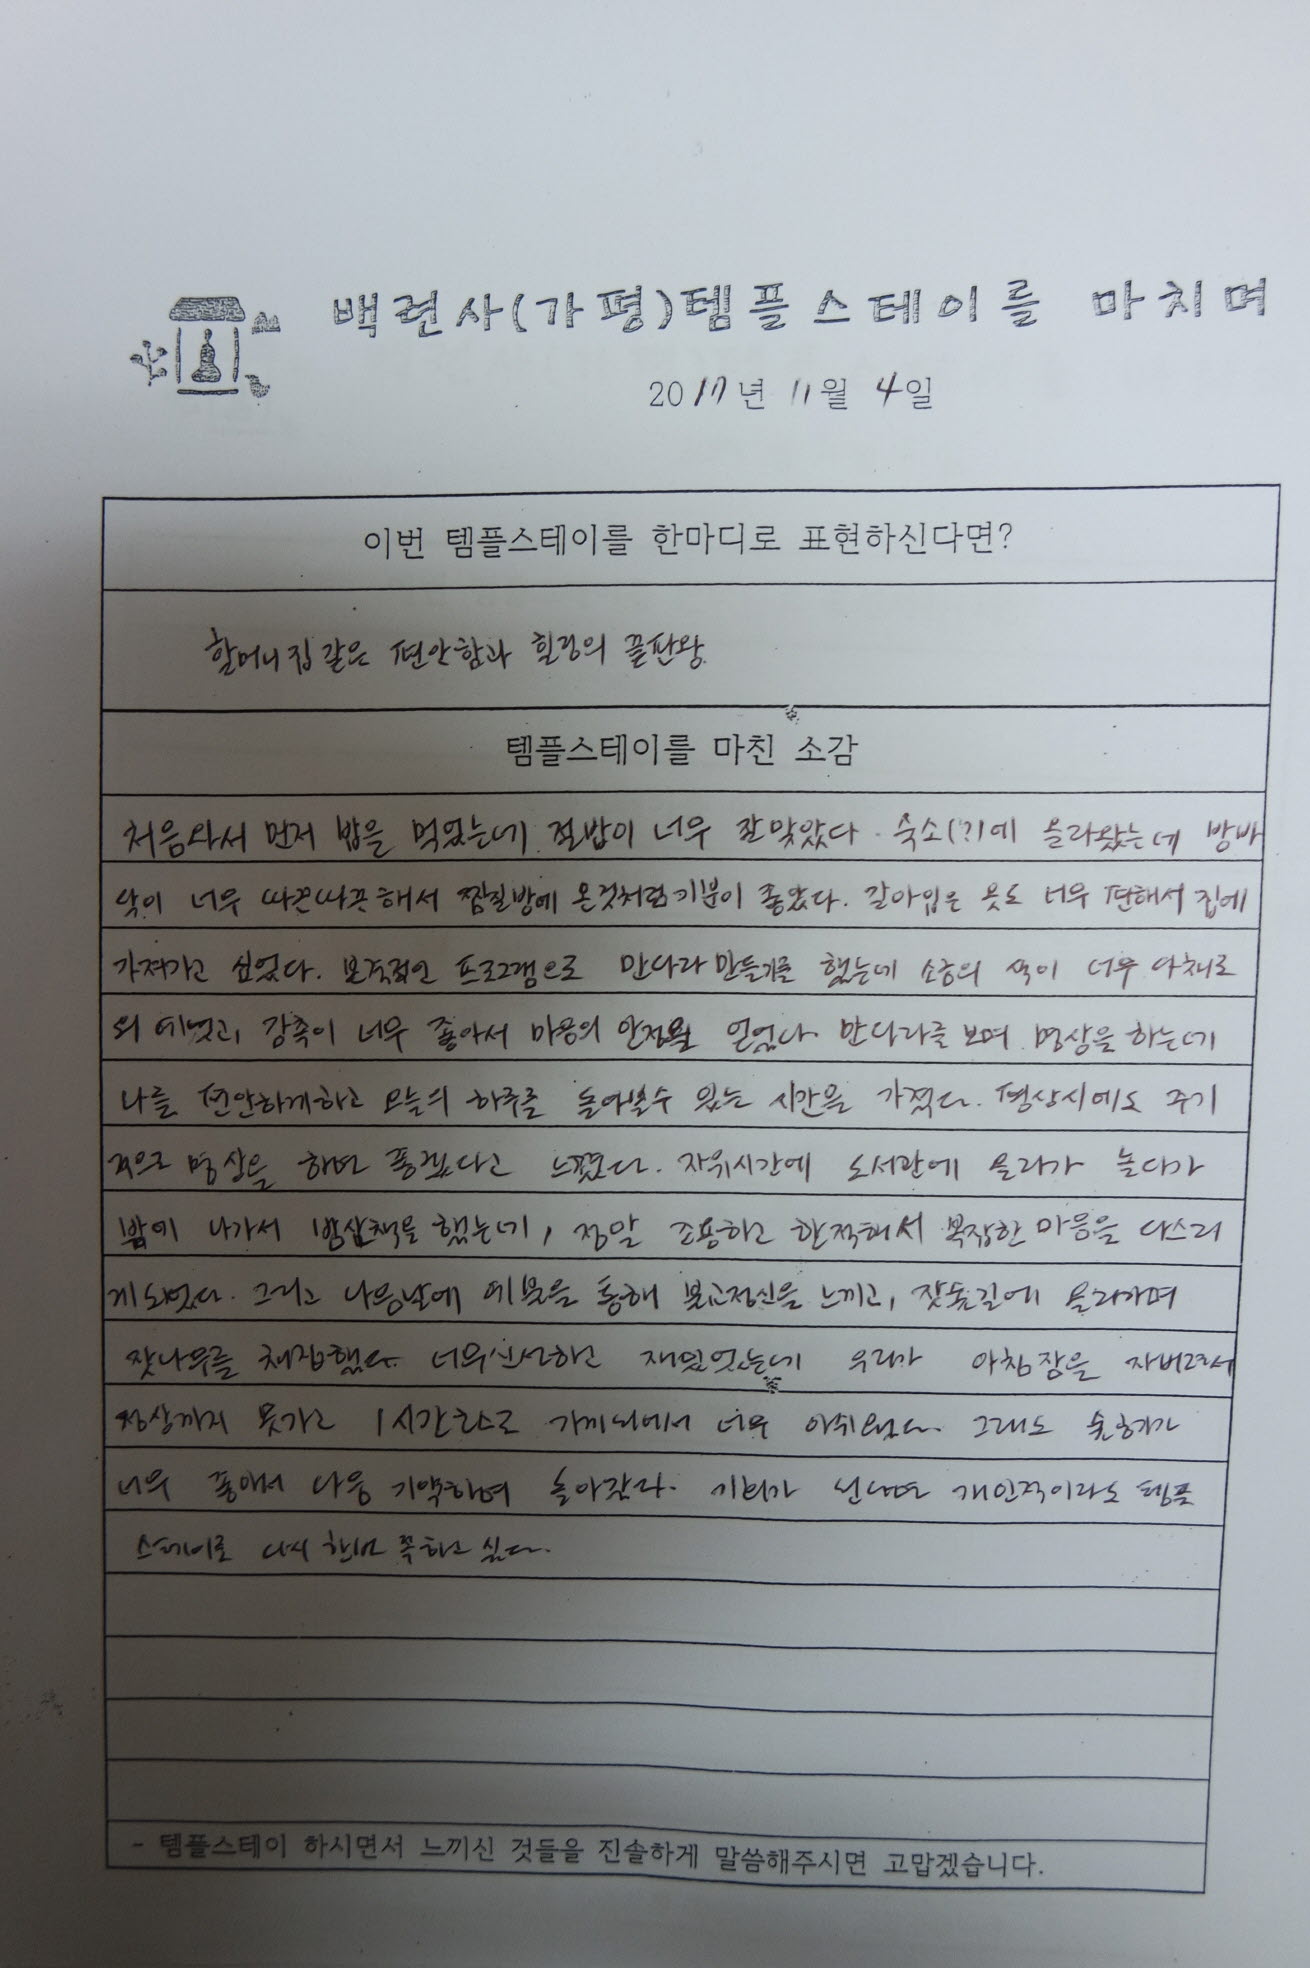 백련사(가평)템플스테이를 마치며
2017년 11월 4일
이번 템플스테이를 한마디로 표현하신다면?
할머니집 같은 편안함과 힐링의 끝판왕
템플스테이를 마친 소감
처음와서 먼저 밥을 먹었는데 절밥이 너무 잘맞았다. 숙소(?)에 올라왔는데 방바
닥이 너무 따끈따끈해서 찜질방에 온것처럼 기분이 좋았다. 갈아입은 옷도 너무 편해서 집에
가져가고 싶었다. 본격적인 프로그램으로 만다라 만들기를 했는데 소금의 색이 너무 다채로
워 예뻤고, 감촉이 너무 좋아서 마음의 안정을 얻었다. 만다라를 보며 명상을 하는데
나를 편안하게하고 오늘의 하루를 돌아볼수 있는 시간을 가졌다. 평상시에도 주기
적으로 명상을 하면 좋겠다고 느꼈다. 자유시간에 도서관에 올라가 놀다가
밤에 나가서 밤산책을 했는데, 정말 조용하고 한적해서 복잡한 마음을 다스리
게되었다. 그리고 다음날에 예불을 통해 불교정신을 느끼고, 잣숲길에 올라가며
잣나무를 채집했다. 너무 신선하고 재밌었는데 우리가 아침잠을 자버려서
정상까지 못가고 1시간코스로 가게되어서 너무 아쉬웠다. 그래도
너무 좋아서 다음 기약하며 돌아갔다. 기회가 된다면 개인적이라도 템플
스테이로 다시 한번 꼭하고 싶다.
- 템플스테이 하시면서 느끼신 것들을 진솔하게 말씀해주시면 고맙겠습니다.